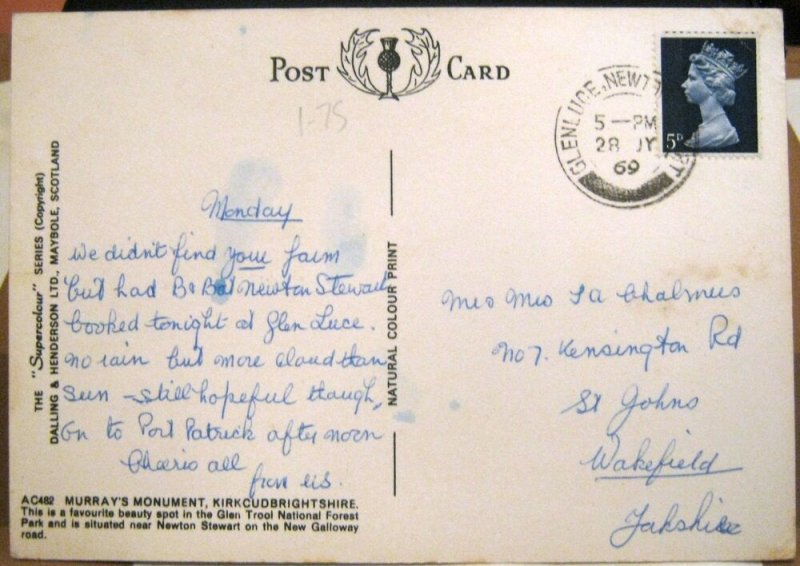 POST CARD
1-75
GLENLUCE, NEWT
5-PM
28 JY
69
5D
THE "Supercolour" SERIES (Copyright)
DALLING & HENDERSON LTD., MAYBOLE, SCOTLAND
NATURAL COLOUR PRINT
Monday
We didn't find your farm
but had B & B at Newton Stewart
booked tonight at Glen Luce.
no rain but more cloud than
sun - still hopeful though,
On to Port Patrick after noon
Cheerio all
from us.
AC482 MURRAY'S MONUMENT, KIRKCUDBRIGHTSHIRE.
This is a favourite beauty spot in the Glen Trool National Forest
Park and is situated near Newton Stewart on the New Galloway
road.
Chalmers
No 7. Kensington Rd
St Johns
Wakefield
Yorkshire